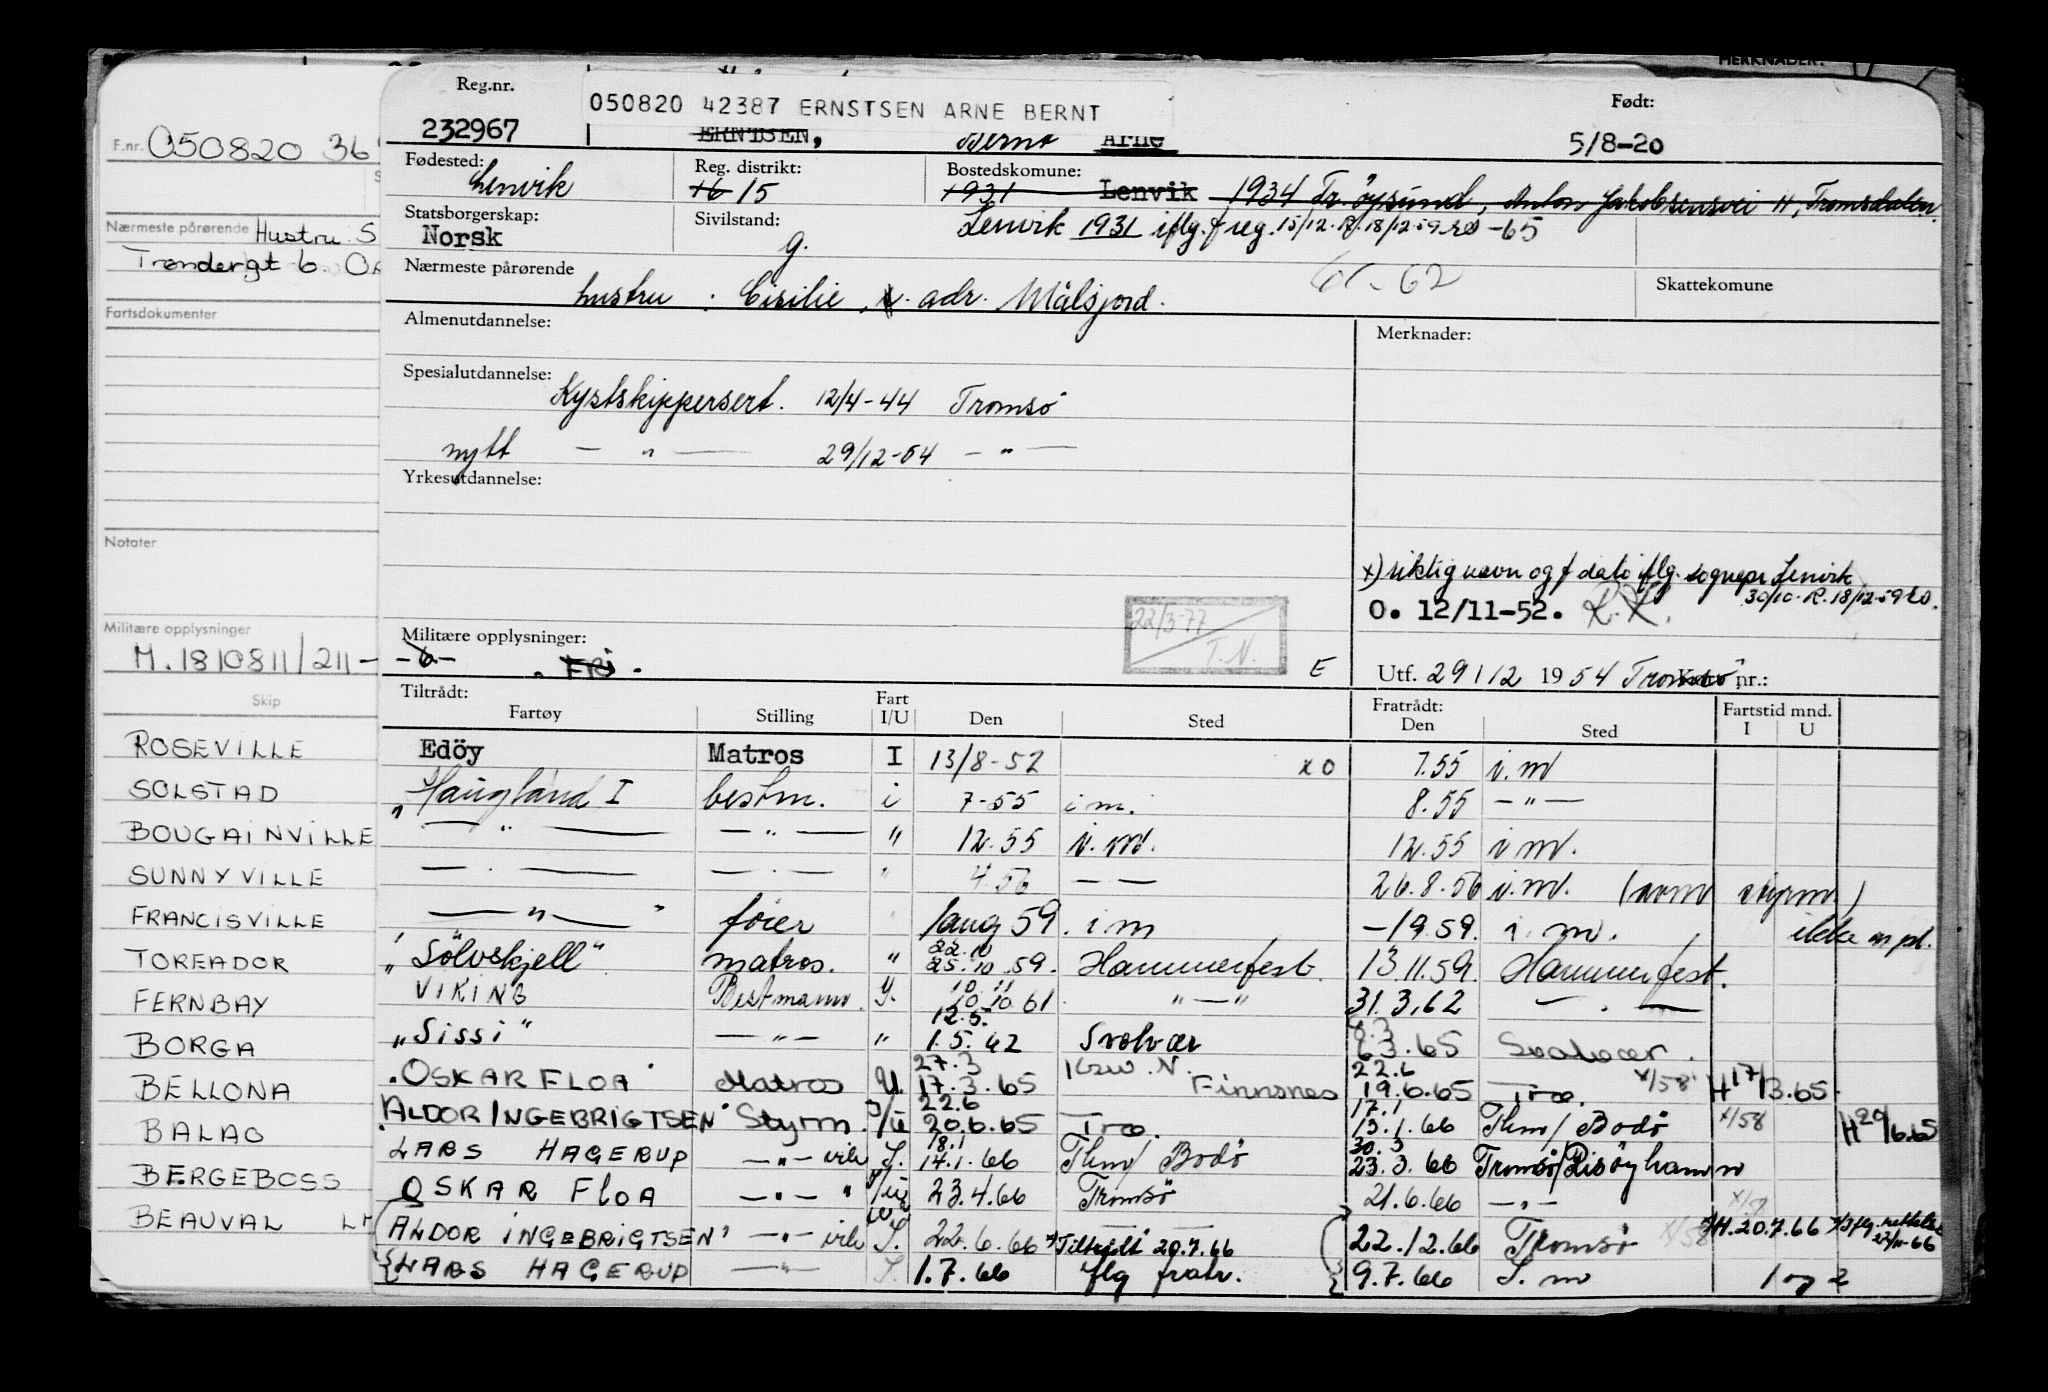 MERKNADER:
F.nr. 050820 36
Nærmeste pårørende Hustru S
Trøndergt 6. O
Fartsdokumenter
Notater
Militære opplysninger
M. 1810811/211-
Skip
ROSEVILLE
SOLSTAD
BOUGAINVILLE
SUNNYVILLE
FRANCISVILLE
TOREADOR
FERNBAY
BORGA
BELLONA
BALAO
BERGEBOSS
BEAUVAL
Reg.nr. Født:
050820 42387 ERNSTSEN ARNE BERNT
232967 ERNTSEN, Bernt Arne 5/8-20
Fødested: Lenvik Reg. distrikt: 16 15 Bostedskomune: 1931 Lenvik 1934 Tr.öysund, Anton Jakobsensvei 11, Tromsdalen
Statsborgerskap: Norsk Sivilstand: g. Lenvik 1931 iflg. f reg. 15/12. R. 18/12-59 -65
Nærmeste pårørende hustru : Cisilie, adr. Målsjord. 62 Skattekomune
Almenutdannelse: Merknader:
Spesialutdannelse: Kystskippersert. 12/4-44 Tromsö
nytt — " — 29/12-54 — " —
Yrkesutdannelse:
x) riktig navn og f dato iflg. sognepr Lenvik
30/10. R. 18/12-59
O. 12/11-52.
22/3-77
T.N.
Militære opplysninger: -6- . FRI . E Utf. 29/12 1954 Tromsö, nr.:
Tiltrådt: Fratrådt: Fartstid mnd.
Fartøy Stilling Fart I/U Den Sted Den Sted I U
Edöy Matros I 13/8-52 x0 7.55 i.m
„Haugland I bestm. i 7-55 i m. 8.55 — " —
— " — — " — " 12.55 i.m. 12.55 i m.
— . — — . — " 4.56 — — 26.8.56 i.m. (som styrm)
— " — " fører 1 aug 59. i m -19.59. i.m. ikke m pl.
„Sölvskjell" matros. " 22.10 25.10.59. Hammerfest. 13.11.59. Hammerfest.
VIKING Bestmann. I. 10.11 10.10.61 " — " 31.3.62 — . —
„Sissi" — " — " 12.5. 1.5.62 Svolvær 8.3 6.3.65 Svolvær.
OSKAR FLOA Matros U. 27.3 17.3.65 Krsu. N. Finnsnes 22.6 19.6.65 Trø. x/58 H 17/3.65
ALDOR INGEBRIGTSEN Styrm. I/U 22.6 20.6.65 Trø. 17.1 13.1.66 Thm/ Bodö x/58 H 20/6.65
LARS HAGERUP — " — vik I. 18.1 14.1.66 Thm/ Bodö 30.3 23.3.66 Tromsö/Risöyhamn
OSKAR FLOA — " — " I/U 23.4.66 Tromsö 21.6.66 — " — x/58
ALDOR INGEBRIGTSEN" — " — vik I. 22.6.66 Tiltrådt 20.7.66 22.12.66 Tromsö x/58 H. 20.7.66 iflg. rettelse 22/11-66
LARS HAGERUP — " — I. 1.7.66 flg fratr. 9.7.66 S.m 1 og 2